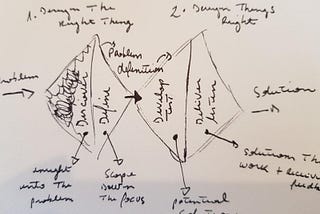 1. Design The
Right Thing
2. Design Things
Right
Problem
definition
roblem
Discover
Define
Develop
Test
Deliver
listen
Solution
insight
into The
problem
Scope
down to
The focus
potential
solutions Th
work + receive
feedb